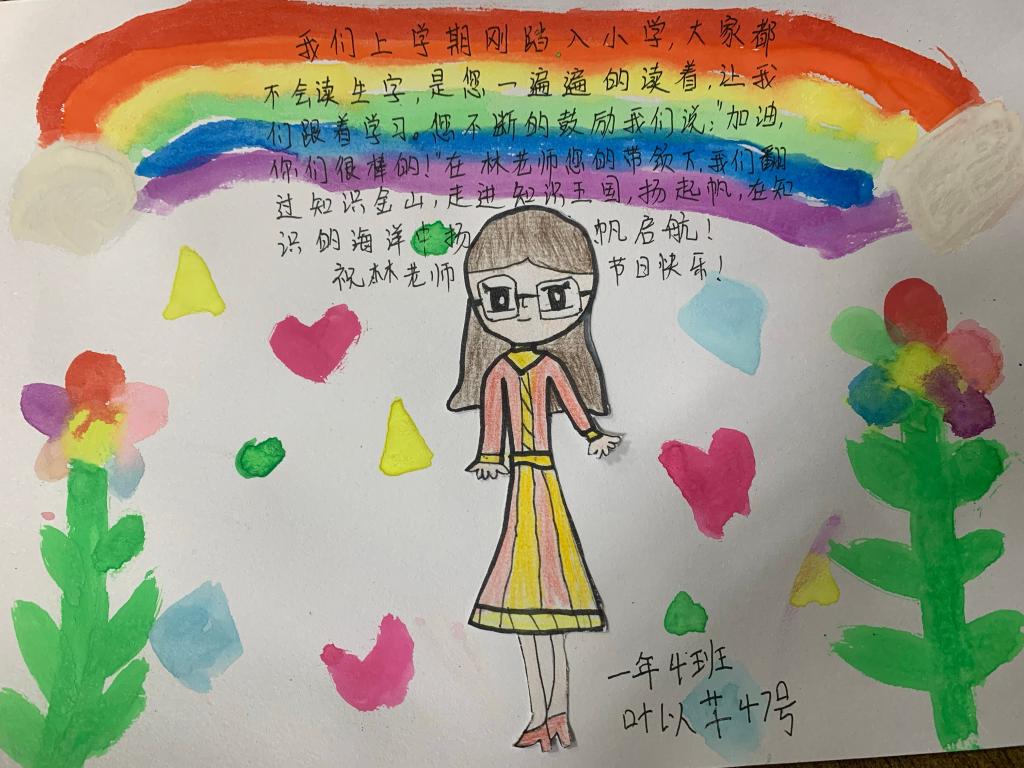 我们上学期刚踏入小学,大家都
不会读生字,是您一遍遍的读着,让我
们跟着学习。您不断的鼓励我们说:"加油,
你们很棒的!"在林老师您的带领下,我们翻
过知识金山,走进知识王国,扬起帆,在知
识的海洋中扬帆启航!
祝林老师节日快乐!
一年4班
叶以 47号